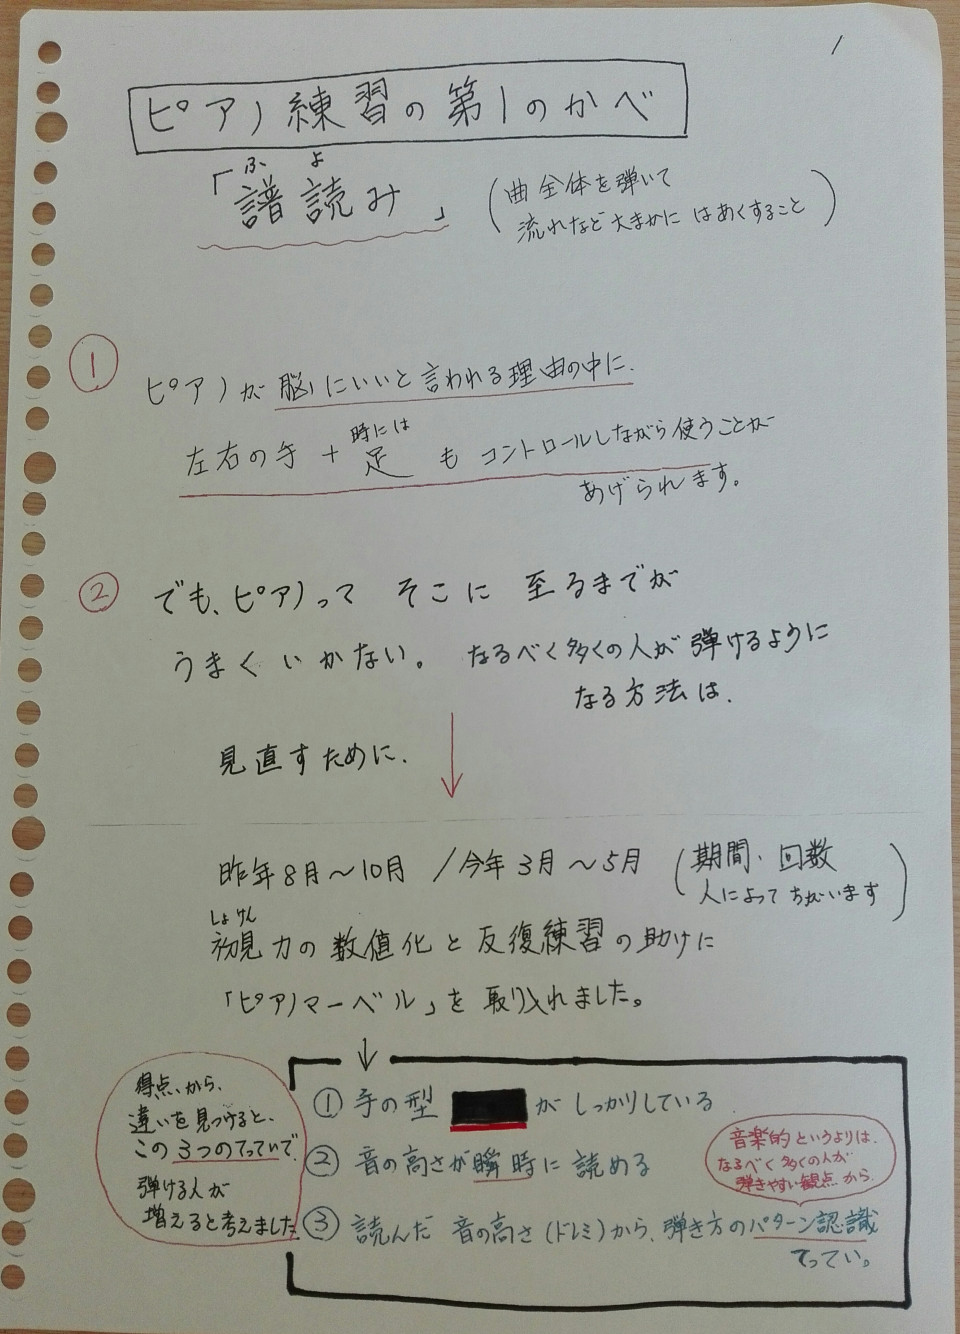 1
ピアノ練習の第1のかべ
ふ よ
「譜読み」
(曲全体を弾いて
流れなど大まかに はあくすること)
① ピアノが脳にいいと言われる理由の中に、
時には
左右の手 + 足 も コントロールしながら使うことが
あげられます。
② でも、ピアノって そこに 至るまでが
うまくいかない。 なるべく多くの人が弾けるように
なる方法は、
見直すために、
昨年8月〜10月 /今年3月〜5月 (期間、回数
人によってちがいます)
しょけん
初見力の数値化と反復練習の助けに
「ピアノマーベル」を取り入れました。
得点から、
違いを見つけると、
この3つのてっていで、
弾ける人が
増えると考えました
① 手の型 がしっかりしている
② 音の高さが瞬時に読める
音楽的というよりは、
なるべく多くの人が
弾きやすい観点から、
③ 読んだ 音の高さ(ドレミ)から、弾き方のパターン認識
てってい。